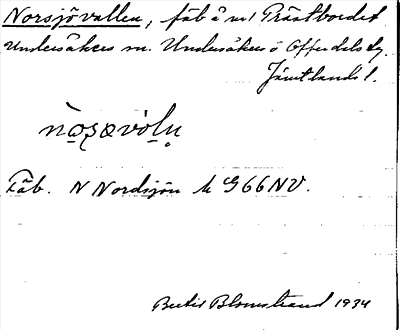 Norsjövallen, fäb å nr 1 Prästbordet
Undersåkers sn. Undersåkers o Offerdals tg.
Jämtlands l.
Fäb. N Nordsjön k G66NV.
Bertil Blomstrand 1934